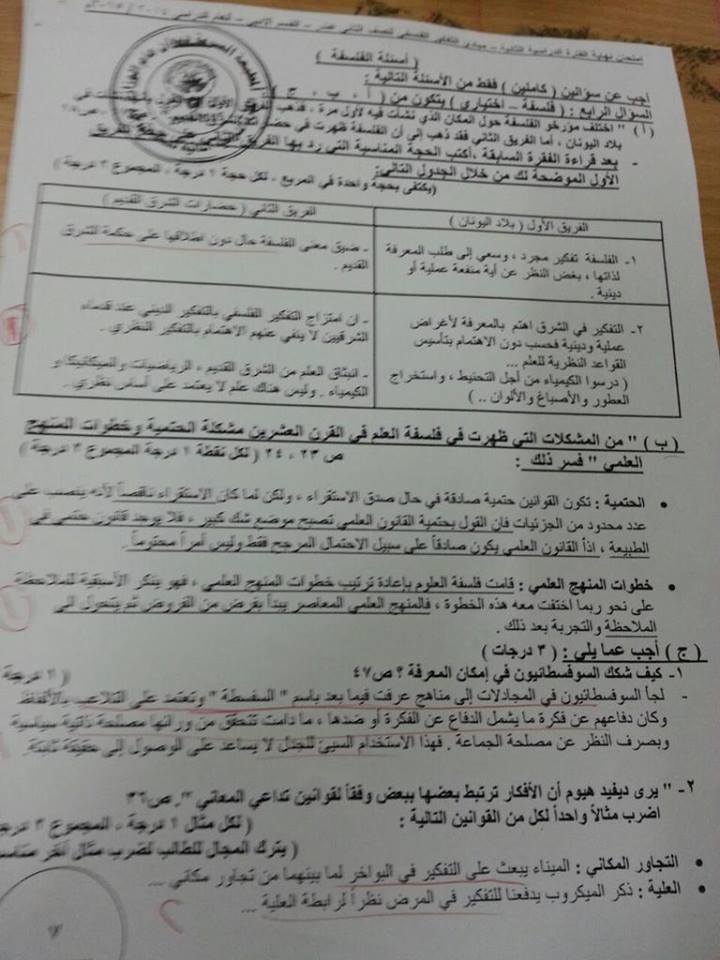 امتحان نهاية الفترة الدراسية الثانية – مبادئ التفكير الفلسفي للصف الثاني عشر – القسم الأدبي – للعام الدراسي
( أسئلة الفلسفة )
أجب عن سؤالين ( كاملين ) فقط من الأسئلة التالية :
السؤال الرابع : ( فلسفة – اختياري ) يتكون من ( أ ، ب ، ج )
( أ ) " اختلف مؤرخو الفلسفة حول المكان الذي نشأت فيه لأول مرة ، فذهب الفريق الأول
بلاد اليونان ، أما الفريق الثاني فقد ذهب إلى أن الفلسفة ظهرت في حضارات
- بعد قراءة الفقرة السابقة ،أكتب الحجة المناسبة التي رد بها الفريق الثاني على حجة الفريق
الأول الموضحة لك من خلال الجدول التالي:
(يكتفى بحجة واحدة في المربع ، لكل حجة ١ درجة ، المجموع ٢ درجة )
الفريق الأول ( بلاد اليونان )
الفريق الثاني ( حضارات الشرق القديم )
١- الفلسفة تفكير مجرد ، وسعي إلى طلب المعرفة
لذاتها ، بغض النظر عن أية منفعة عملية أو
دينية .
- ضيق معنى الفلسفة حال دون اطلاقها على حكمة الشرق
القديم .
٢- التفكير في الشرق اهتم بالمعرفة لأغراض
عملية ودينية فحسب دون الاهتمام بتأسيس
القواعد النظرية للعلم ...
( درسوا الكيمياء من أجل التحنيط ، واستخراج
العطور والأصباغ والألوان .. )
- ان امتزاج التفكير الفلسفي بالتفكير الديني عند قدماء
الشرقيين لا ينفي عنهم الاهتمام بالتفكير النظري .
- انبثاق العلم من الشرق القديم ، الرياضيات والميكانيكا و
الكيمياء . وليس هناك علم لا يعتمد على أساس نظري .
( ب ) " من المشكلات التي ظهرت في فلسفة العلم في القرن العشرين مشكلة الحتمية وخطوات المنهج
العلمي " فسر ذلك : ص ٢٣ ، ٢٤ ( لكل نقطة ١ درجة المجموع ٢ درجة )
• الحتمية : تكون القوانين حتمية صادقة في حال صدق الاستقراء ، ولكن لما كان الاستقراء ناقصاً لأنه ينصب على
عدد محدود من الجزئيات فإن القول بحتمية القانون العلمي تصبح موضع شك كبير ، فلا يوجد قانون حتمي في
الطبيعة ، اذاً القانون العلمي يكون صادقاً على سبيل الاحتمال المرجح فقط وليس أمراً محتوماً .
• خطوات المنهج العلمي : قامت فلسفة العلوم بإعادة ترتيب خطوات المنهج العلمي ، فهو ينكر الأسبقية للملاحظة
على نحو ربما اختفت معه هذه الخطوة ، فالمنهج العلمي المعاصر يبدأ بفرض من الفروض ثم يتحول الى
الملاحظة والتجربة بعد ذلك .
( ج ) أجب عما يلي : ( ٣ درجات )
١- كيف شكك السوفسطائيون في إمكان المعرفة ؟ ص٤٧ ( ١ درجة
- لجأ السوفسطائيون في المجادلات إلى مناهج عرفت فيما بعد باسم " السفسطة " وتعتمد على التلاعب بالألفاظ
وكان دفاعهم عن فكرة ما يشمل الدفاع عن الفكرة أو ضدها ، ما دامت تتحقق من ورائها مصلحة ذاتية سياسية
وبصرف النظر عن مصلحة الجماعة . فهذا الاستخدام السيئ للجدل لا يساعد على الوصول إلى حقيقة ثابتة.
٢- " يرى ديفيد هيوم أن الأفكار ترتبط بعضها ببعض وفقاً لقوانين تداعي المعاني ". ص٣٦
اضرب مثالاً واحداً لكل من القوانين التالية : ( لكل مثال ١ درجة ، المجموع ٢ درجة
( يترك المجال للطالب لضرب مثال آخر مناسب
• التجاور المكاني : الميناء يبعث على التفكير في البواخر لما بينهما من تجاور مكاني ...
• العلية : ذكر الميكروب يدفعنا للتفكير في المرض نظراً لرابطة العلية ...